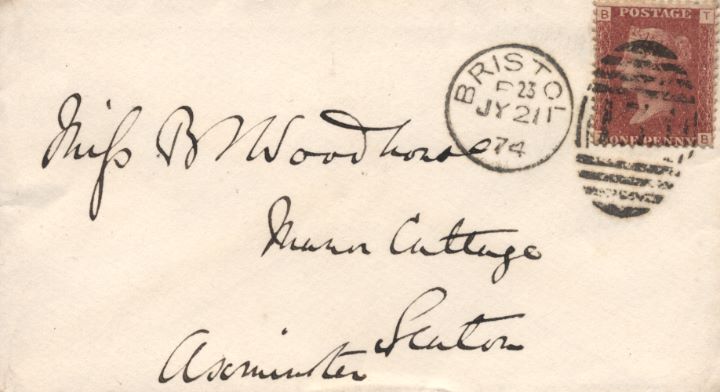 B POSTAGE T
BRISTOL
F 23
JY 21
74
ONE PENNY B
Miss B Woodhouse
Manor Cottage
Seaton
Axminster